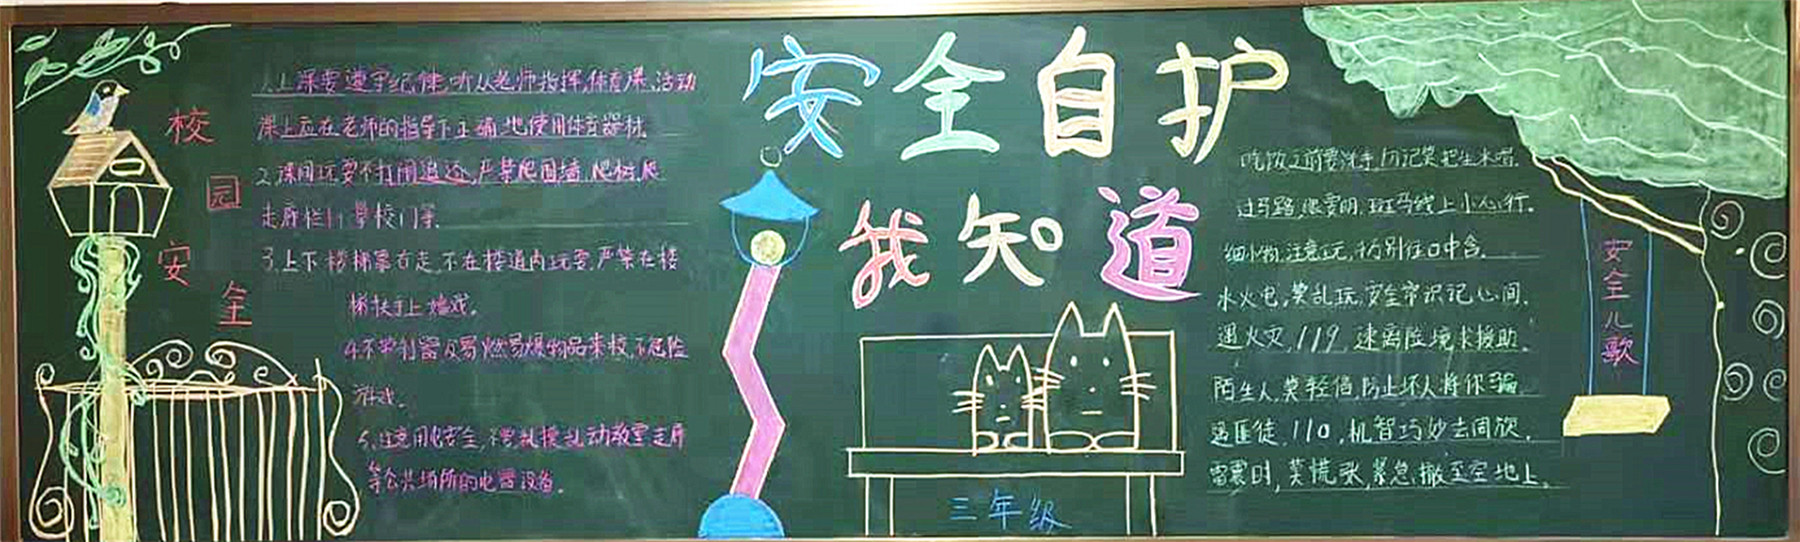 校园安全
1.上课要遵守纪律,听从老师指挥,体育课,活动
课上应在老师的指导下正确地使用体育器材.
2.课间玩耍不打闹追逐,严禁爬围墙,爬树,爬
走廊栏杆,学校门等.
3.上下楼梯靠右走,不在楼道内玩耍,严禁在楼
梯扶手上嬉戏.
4.不带利器及易燃易爆物品来校,不危险
游戏.
5.注意用电安全,不乱摸乱动教室走廊
等公共场所的电器设备.
安全自护
我知道
三年级
吃饭之前要洗手,切记莫把生水喝.
过马路,眼要明,斑马线上小心行.
细小物,注意玩,切别往口中含.
水火电,莫乱玩,安全常识记心间.
遇火灾,119,速离险境求援助.
陌生人,莫轻信,防止坏人将你骗.
遇匪徒,110,机智巧妙去周旋.
雷震时,莫慌张,紧急撤至空地上.
安全儿歌